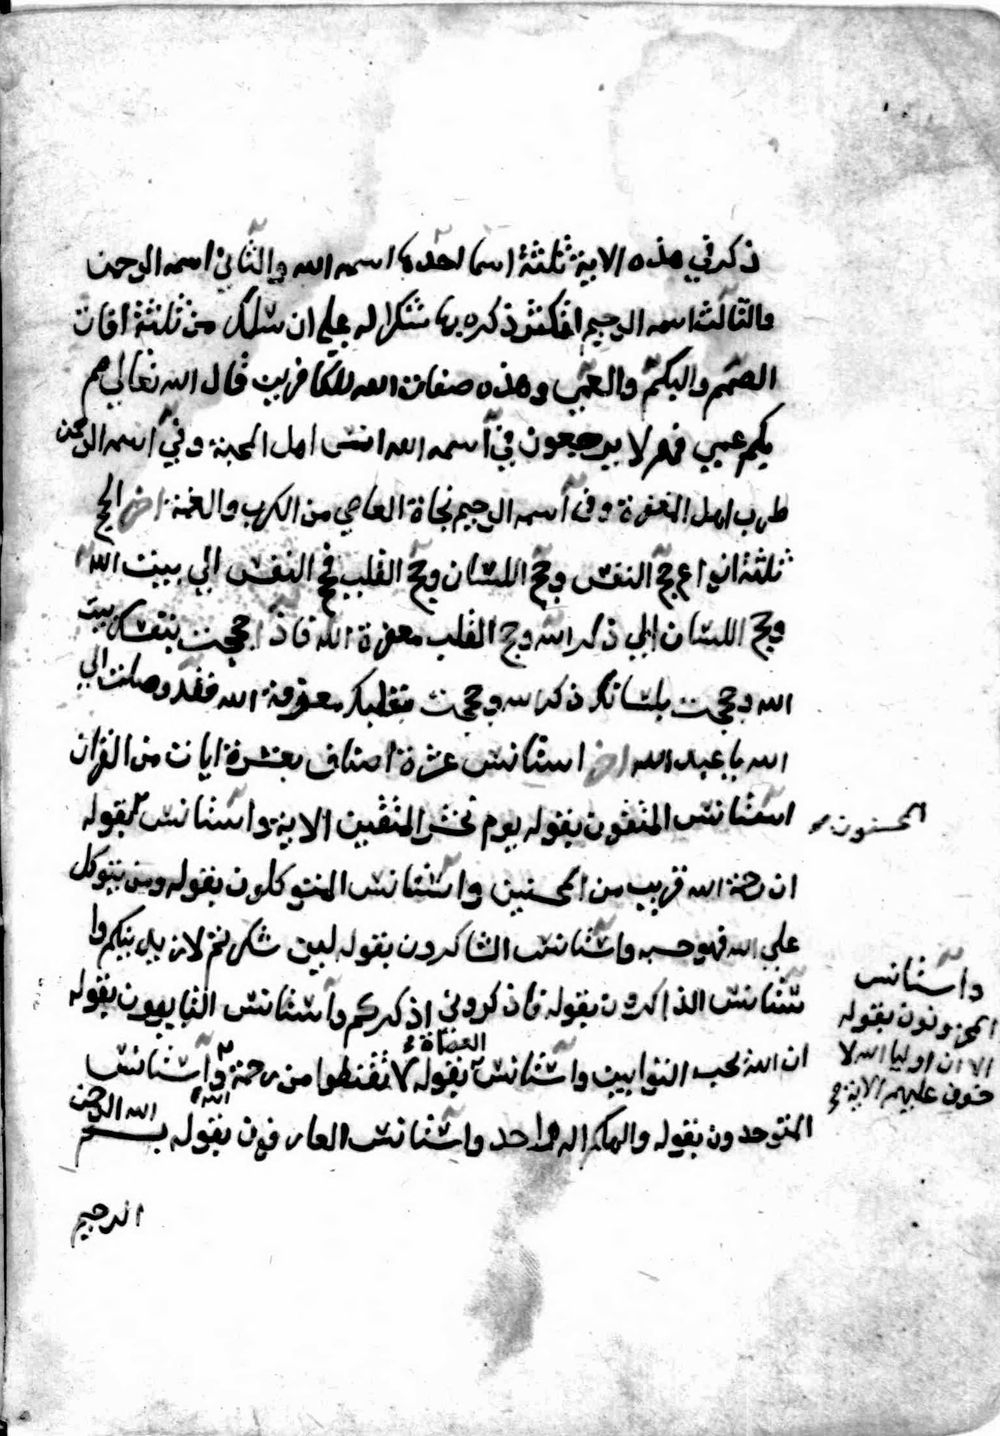 ذكر في هذه الاية ثلثة اسما احدها اسمه الله والثاني اسمه الرحمن
والثالث اسمه الرحيم ذكره بها شكرا له علي ان سلمك من ثلثة افات
الصمم والبكم والعمي وهذه صفات الله للكافرين قال الله تعالي صم
بكم عمي فهم لا يرجعون في اسمه الله انس اهل المحبة وفي اسمه الرحمن
طرب اهل المغفرة وفي اسمه الرحيم نجاة العاصي من الكرب والغمة اخر الحج
ثلثة انواع حج النفس وحج اللسان وحج القلب فحج النفس الي بيت الله
وحج اللسان الي ذكر الله وحج القلب معرفة الله فاذا حججت بنفسك بيت
الله وحججت بلسانك ذكر الله وحججت بقلبك معرفة الله فقد وصلت الي
الله يا عبد الله اخر استانس عشرة اصناف بعشرة ايات من القران
استانس المتقون بقوله يوم نحشر المتقين الاية واستانس بقوله
المحسنون
ان رحمة الله قريب من المحسنين واستانس المتوكلون بقوله ومن يتوكل
علي الله فهو حسبه واستانس الشاكرون بقوله لين شكرتم لازيدنكم وا
ستانس الذاكرون بقوله فاذكروني اذكركم واستانس التايبون بقوله
واستانس
المحزونون بقوله
الا ان اوليا الله لا
خوف عليهم الاية
العصاة
ان الله يحب التوابين واستانس بقوله لا تقنطوا من رحمة الله واستانس
المتوحدون بقوله والهكم اله واحد واستانس العارفون بقوله بسم الله الرحمن
الرحيم